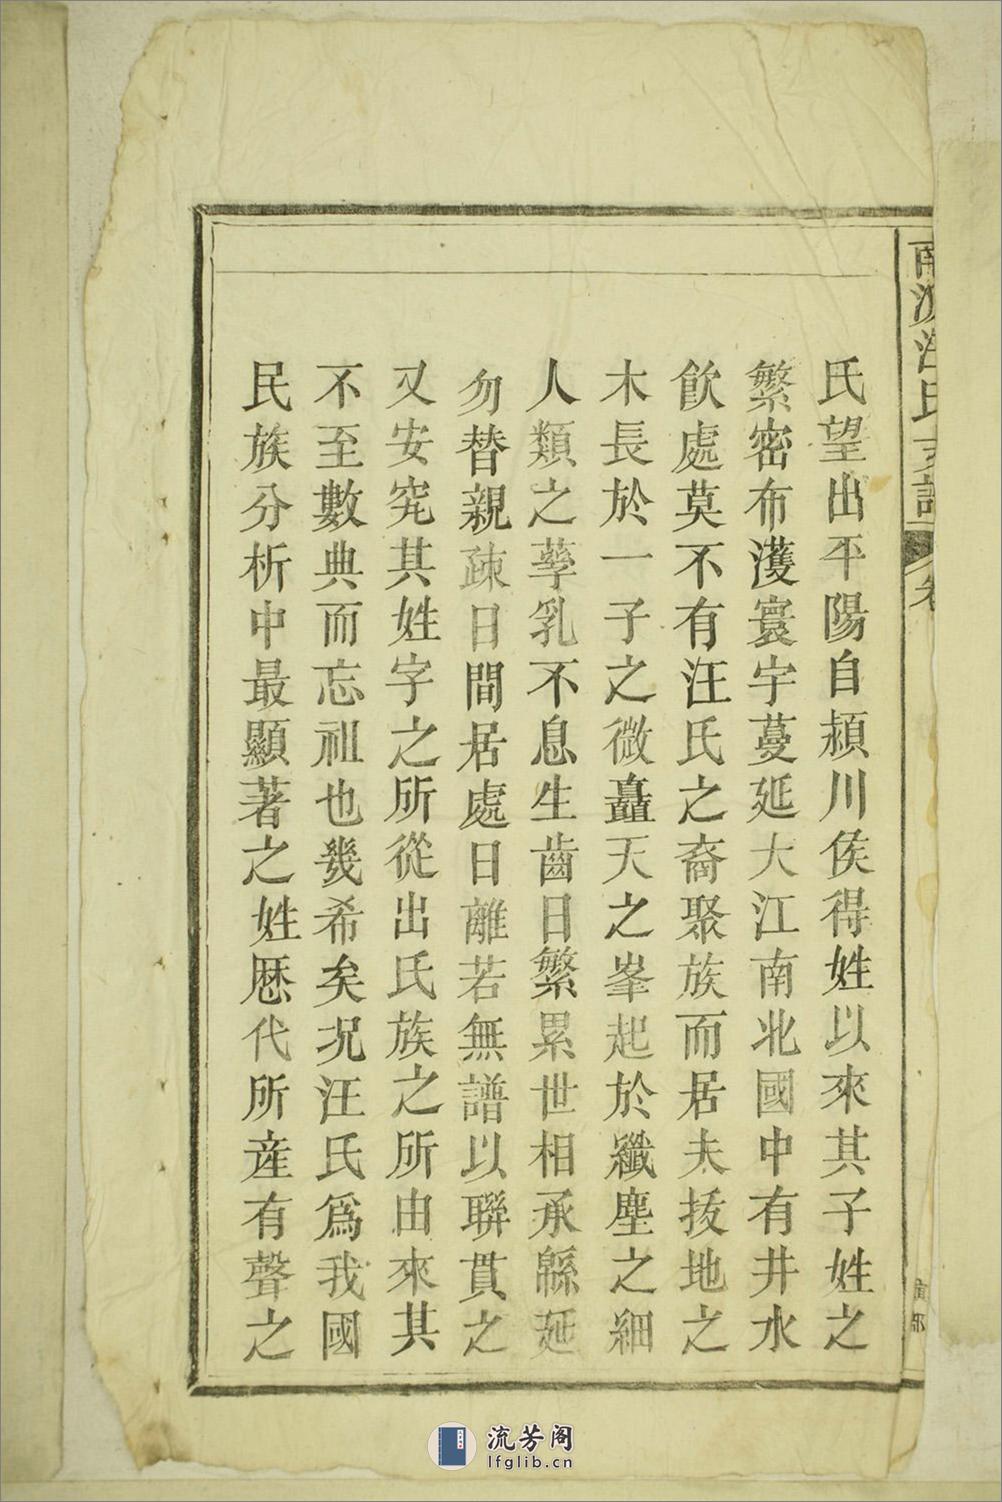 汪氏支譜
氏望出平陽自潁川侯得姓以來其子姓之
繁密布濩寰宇蔓延大江南北國中有井水
飲處莫不有汪氏之裔聚族而居夫拔地之
木長於一子之微矗天之峯起於纖塵之細
人類之孳乳不息生齒日繁累世相承緜延
勿替親疎日間居處日離若無譜以聯貫之
又安究其姓字之所從出氏族之所由來其
不至數典而忘祖也幾希矣况汪氏爲我國
民族分析中最顯著之姓歷代所産有聲之
流芳阁
lfglib.cn